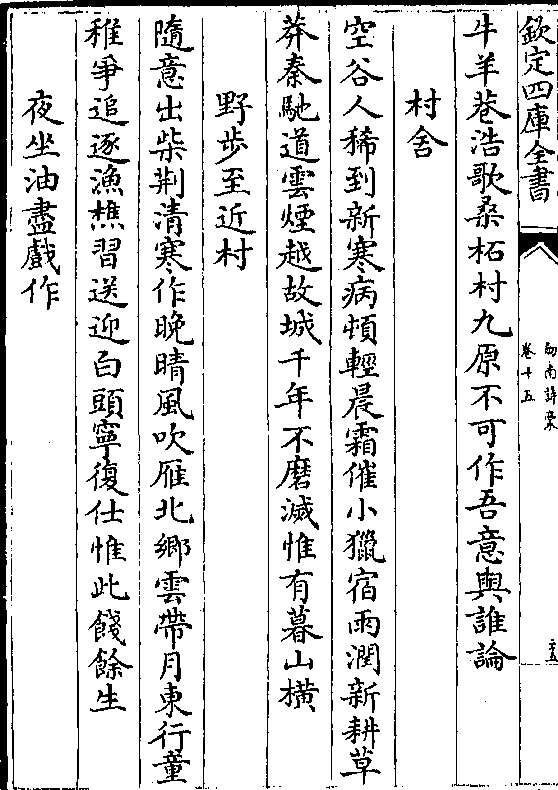 欽定四庫全書
劍南詩槀
卷十五
牛羊巷浩歌桑柘村九原不可作吾意與誰論
村舍
空谷人稀到新寒病頓輕晨霜催小獵宿雨潤新耕草
莽秦馳道雲煙越故城千年不磨滅惟有暮山橫
野步至近村
隨意出柴荆清寒作晚晴風吹雁北鄉雲帶月東行童
稚爭追逐漁樵習送迎白頭寧復仕惟此餞餘生
夜坐油盡戲作